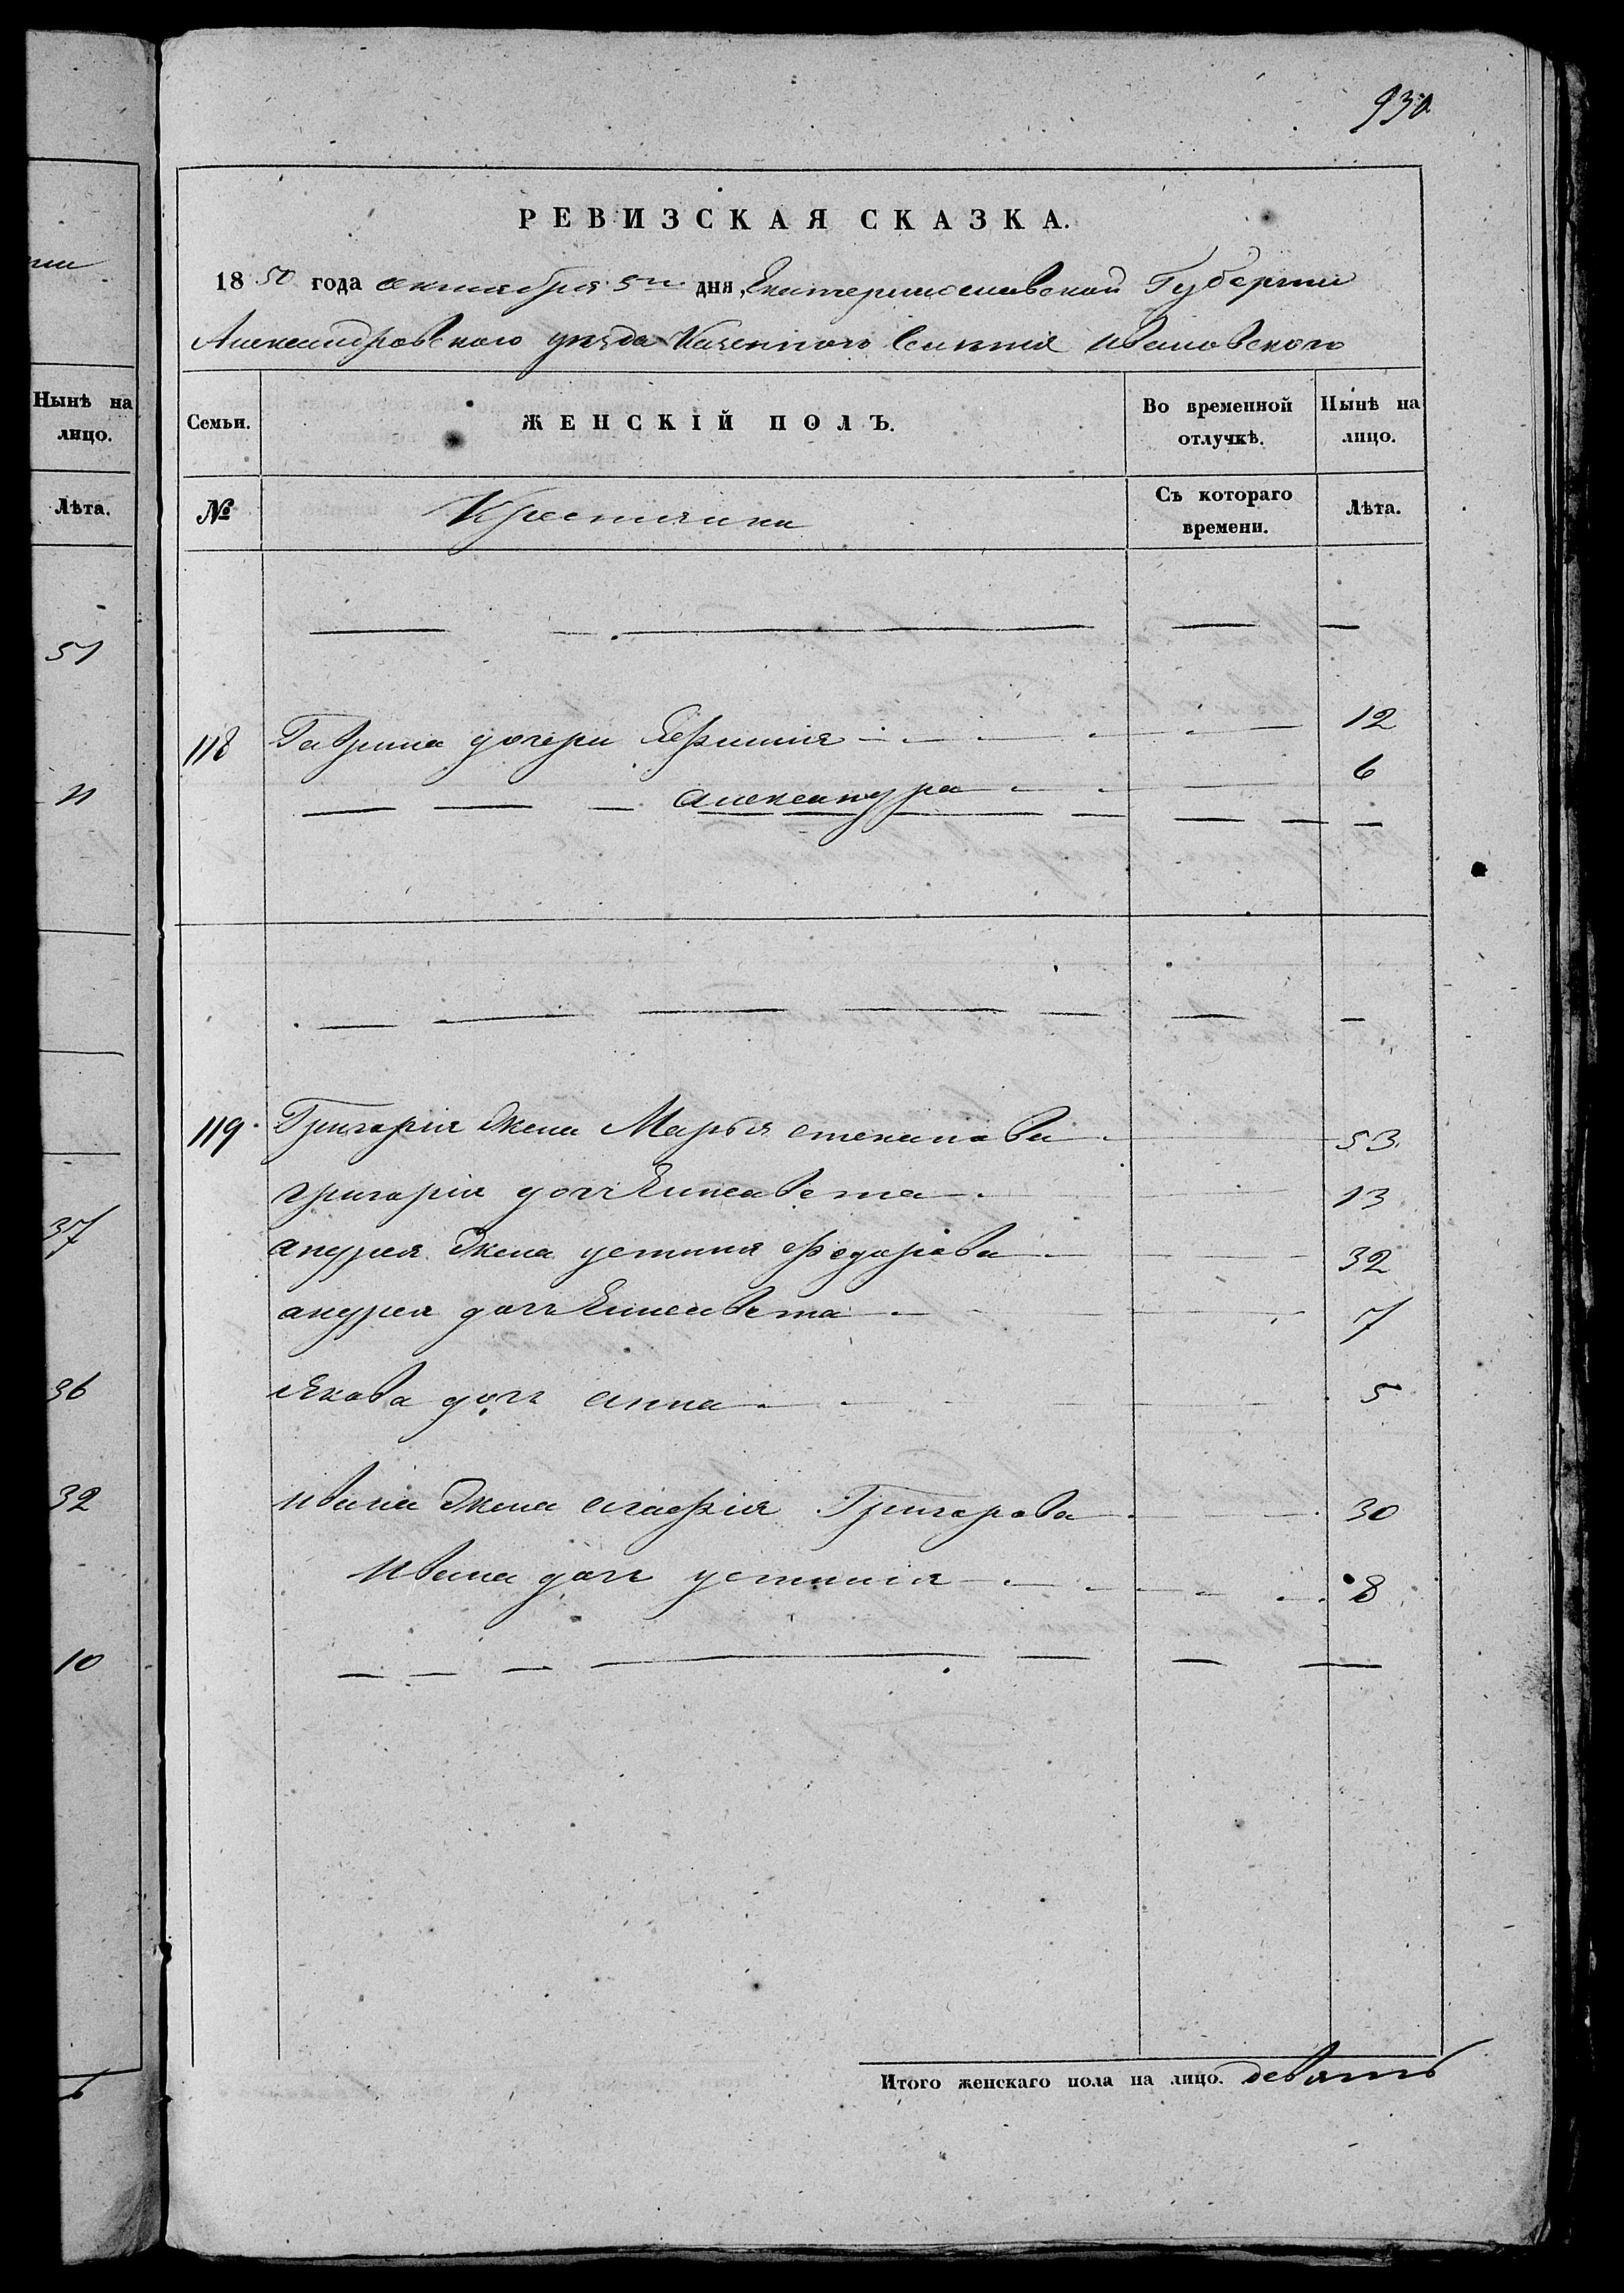 930
РЕВИЗСКАЯ СКАЗКА.
1850 года октября 5го дня, Екатеринославской Губернии
Александровского уезда Казенного Селения Ивановского
Нынѣ на лицо.
Лѣта.
51
11
37
36
32
10
Семьи. ЖЕНСКІЙ ПОЛЪ. Во временной отлучкѣ. Нынѣ на лицо.
№ Крестьяне Съ котораго времени. Лѣта.
118 Гаврила дочери Ефимия 12
александра 6
119. Григория жена Марья степанова 53
григория доч Елисавета 13
андрея жена устиния Федорова 32
андрея доч Елисавета 7
Якова доч анна 5
Ивана жена агафия Григорова 30
Ивана доч устиния 8
Итого женскаго пола на лицо. девять